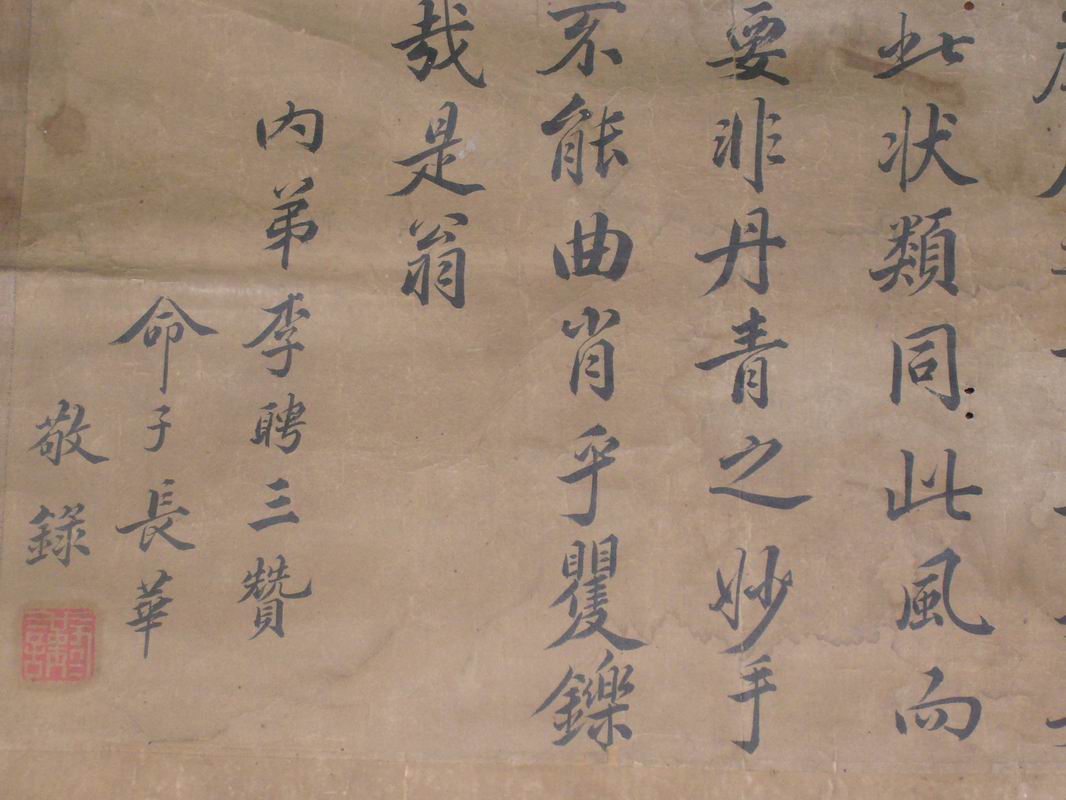 此状類同此風而
要非丹青之妙手
不能曲肖乎矍鑠
哉是翁
内弟李聘三贊
命子長華
敬錄